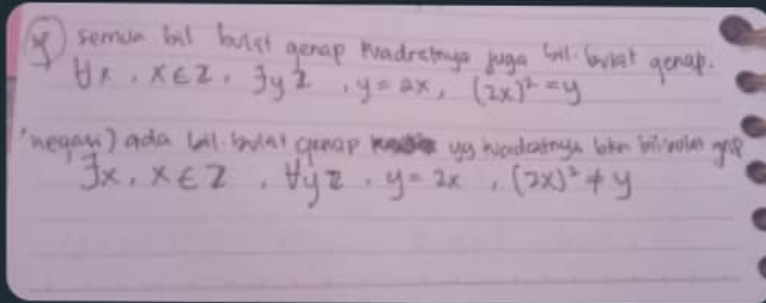 y) semua bil bulat genap kuadratnya juga bil. bulat genap.
∀x, x∈Z, ∃y Z, y = 2x, (2x)² = y
negasi) ada bil. bulat genap yg kuadratnya bkn bil. bulat gnp
∃x, x∈Z, ∀y Z, y = 2x, (2x)² ≠ y